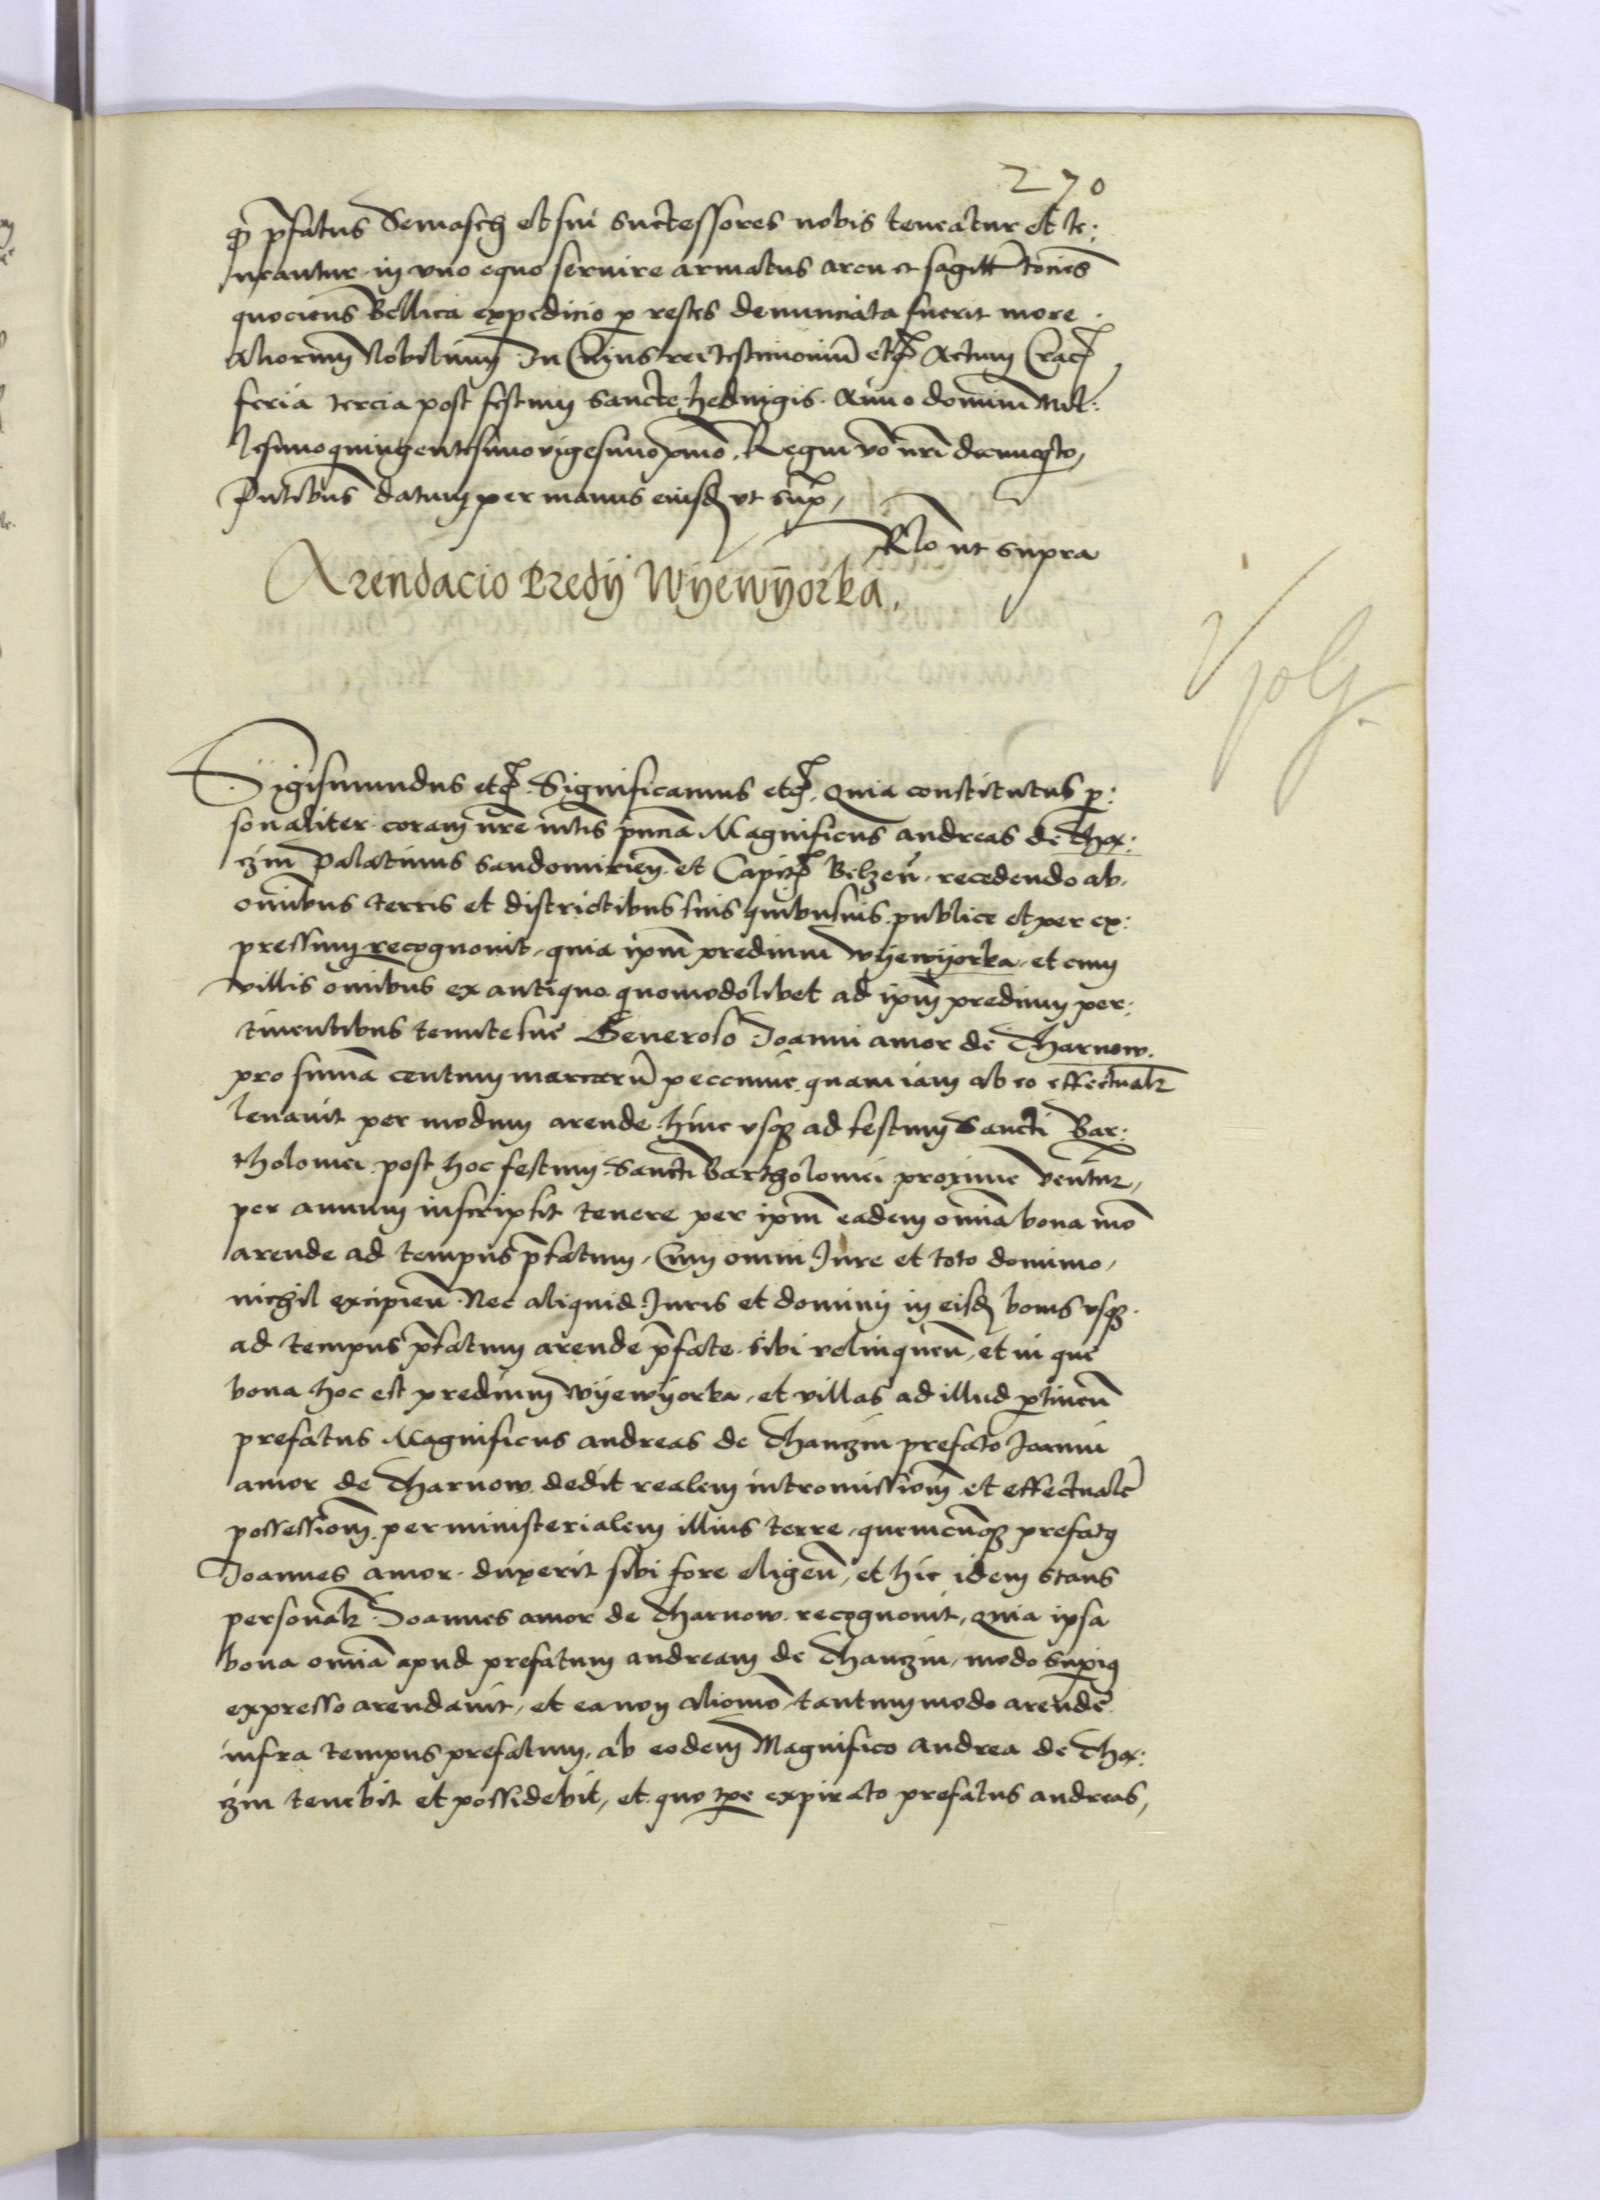 270
q p̄fatus Semasch et sui successores nobis teneatur et te:
neantur in vno equo seruire armatus arcu et sagitt tociens
quociens Bellica expedicio per restes denunciata fuerit more
aliorum Nobilium In Cuius rei testimoniū etc Actum Crac
feria tercia post festum sancte hedwigis Anno domini Mil:
lesimoquingentesimovigesimopmo. Regni vo nri
Pntibus datum per manus eiusd vt sup,
Rlo ut supra
Arendacio Predy Wyewyorka.
Sigismundus etc. Significamus etc. Quia constitutus per:
sonaliter coram nre mtis pncia Magnificus andreas de Tha:
czin Palatinus Sandomirien et Capit Belzen. recedendo ab
omibus terris et districtibus suis quibusuis publice et per ex:
pressum recognouit, quia ipm predium wyewyorka, et cum
villis omibus ex antiquo quomodolibet ad ipm predium per:
tinentibus tenute sue Generoso Joanni amor de Tharnow.
pro suma centum marcarū peccunie quam iam ab eo effectualr
leuauit per modum arende hinc vsq ad festum Sancti Bar:
tholomei post hoc festum Sancti Bartholomei proxime ventur,
per annum inscripsit tenere per ipm eadem omia bona mo
arende ad tempus p̄fatum, Cum omni Jure et toto dominio,
nichil excipien Nec aliquid Juris et dominy in eisd bonis vsq
ad tempus p̄fatum arende p̄fate sibi relinquen, et in que
bona hoc est predium Wyewyorka, et villas ad illud ptinen
prefatus Magnificus andreas de Thanczin prefato Joanni
amor de Tharnow dedit realem intromissiom et effectuale
possessiom per ministerialem illius terre, quemcunq prefatus
Joannes amor duxerit sibi fore eligen, et hic idem stans
personalr Joannes amor de Tharnow recognouit, Quia ipsa
bona omia apud prefatum andream de Thanczin, modo supius
expresso arendauit, et ea non aliomo tantum modo arende
infra tempus prefatum, ab eodem Magnifico andrea de Tha:
czin tenebit et possidebit, et quo tpe expirato prefatus andreas,